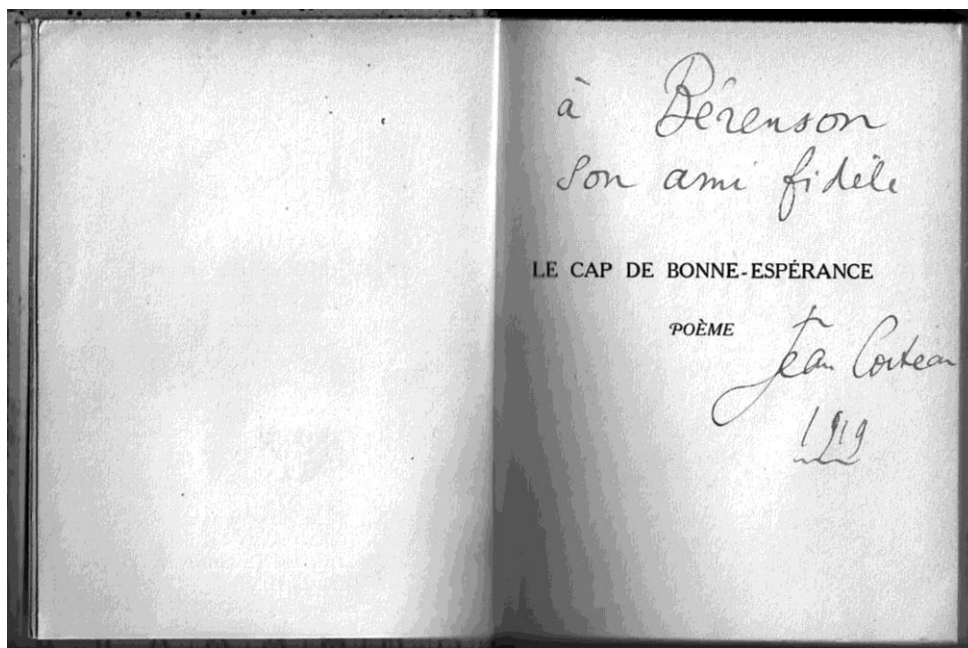 à Bérenson
son ami fidèle
LE CAP DE BONNE-ESPÉRANCE
POÈME
Jean Cocteau
1919